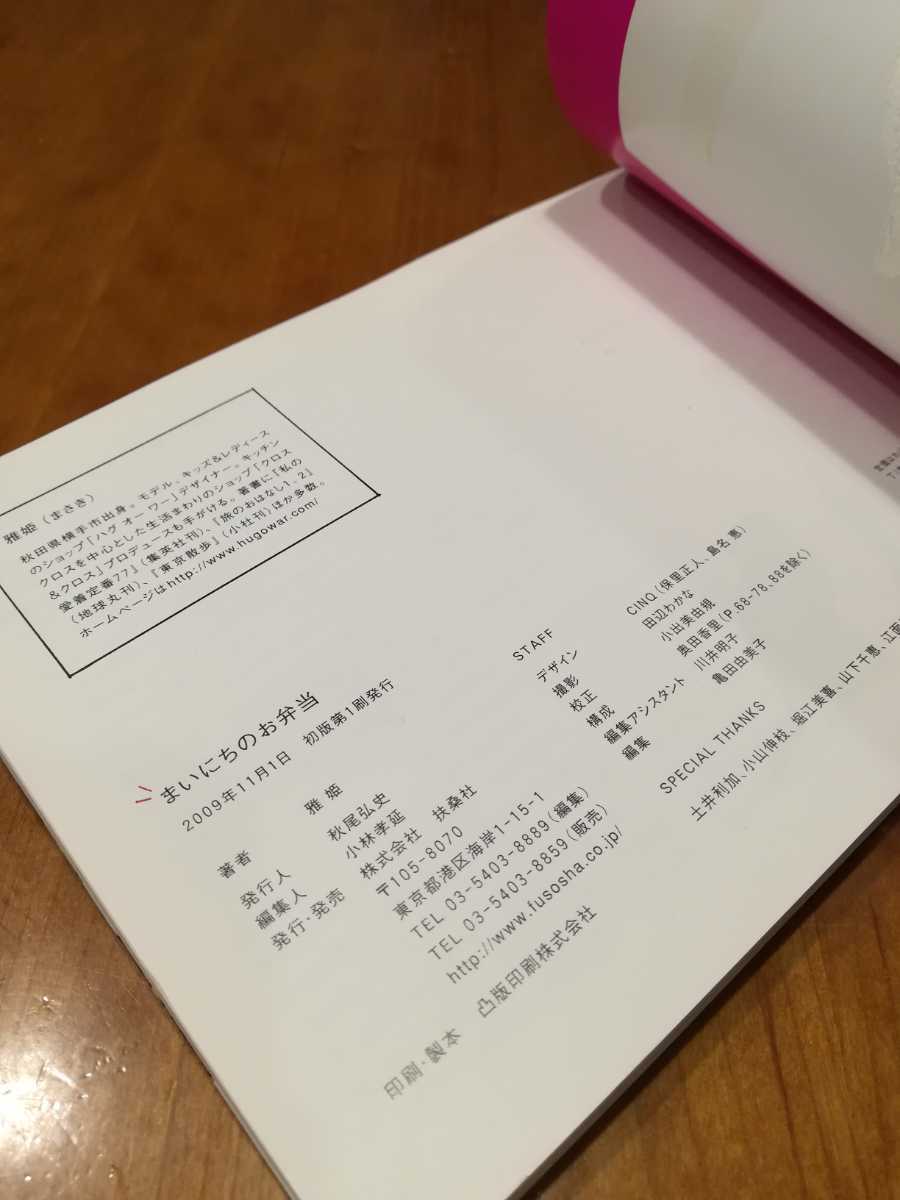 雅姫(まさき)
秋田県横手市出身。モデル、キッズ&レディース
のショップ「ハグ オー ワー」デザイナー。キッチン
クロスを中心とした生活まわりのショップ「クロス
&クロス」プロデュースも手がける。著書に『私の
愛着定番77』(集英社刊)、『旅のおはなし1、2』
(地球丸刊)、『東京散歩』(小社刊)ほか多数。
ホームページはhttp://www.hugowar.com/
まいにちのお弁当
2009年11月1日 初版第1刷発行
著者 雅姫
発行人 秋尾弘史
編集人 小林孝延
発行・発売 株式会社 扶桑社
〒105-8070
東京都港区海岸1-15-1
TEL 03-5403-8889(編集)
TEL 03-5403-8859(販売)
http://www.fusosha.co.jp/
印刷・製本 凸版印刷株式会社
STAFF
デザイン CINQ(保里正人、島名 恵)
撮影 田辺わかな
校正 小出美由規
構成 奥田香里(P.68-78、88を除く)
編集アシスタント 川井明子
編集 亀田由美子
SPECIAL THANKS
土井利加、小山伸枝、堀江美嘉、山下千恵、江面